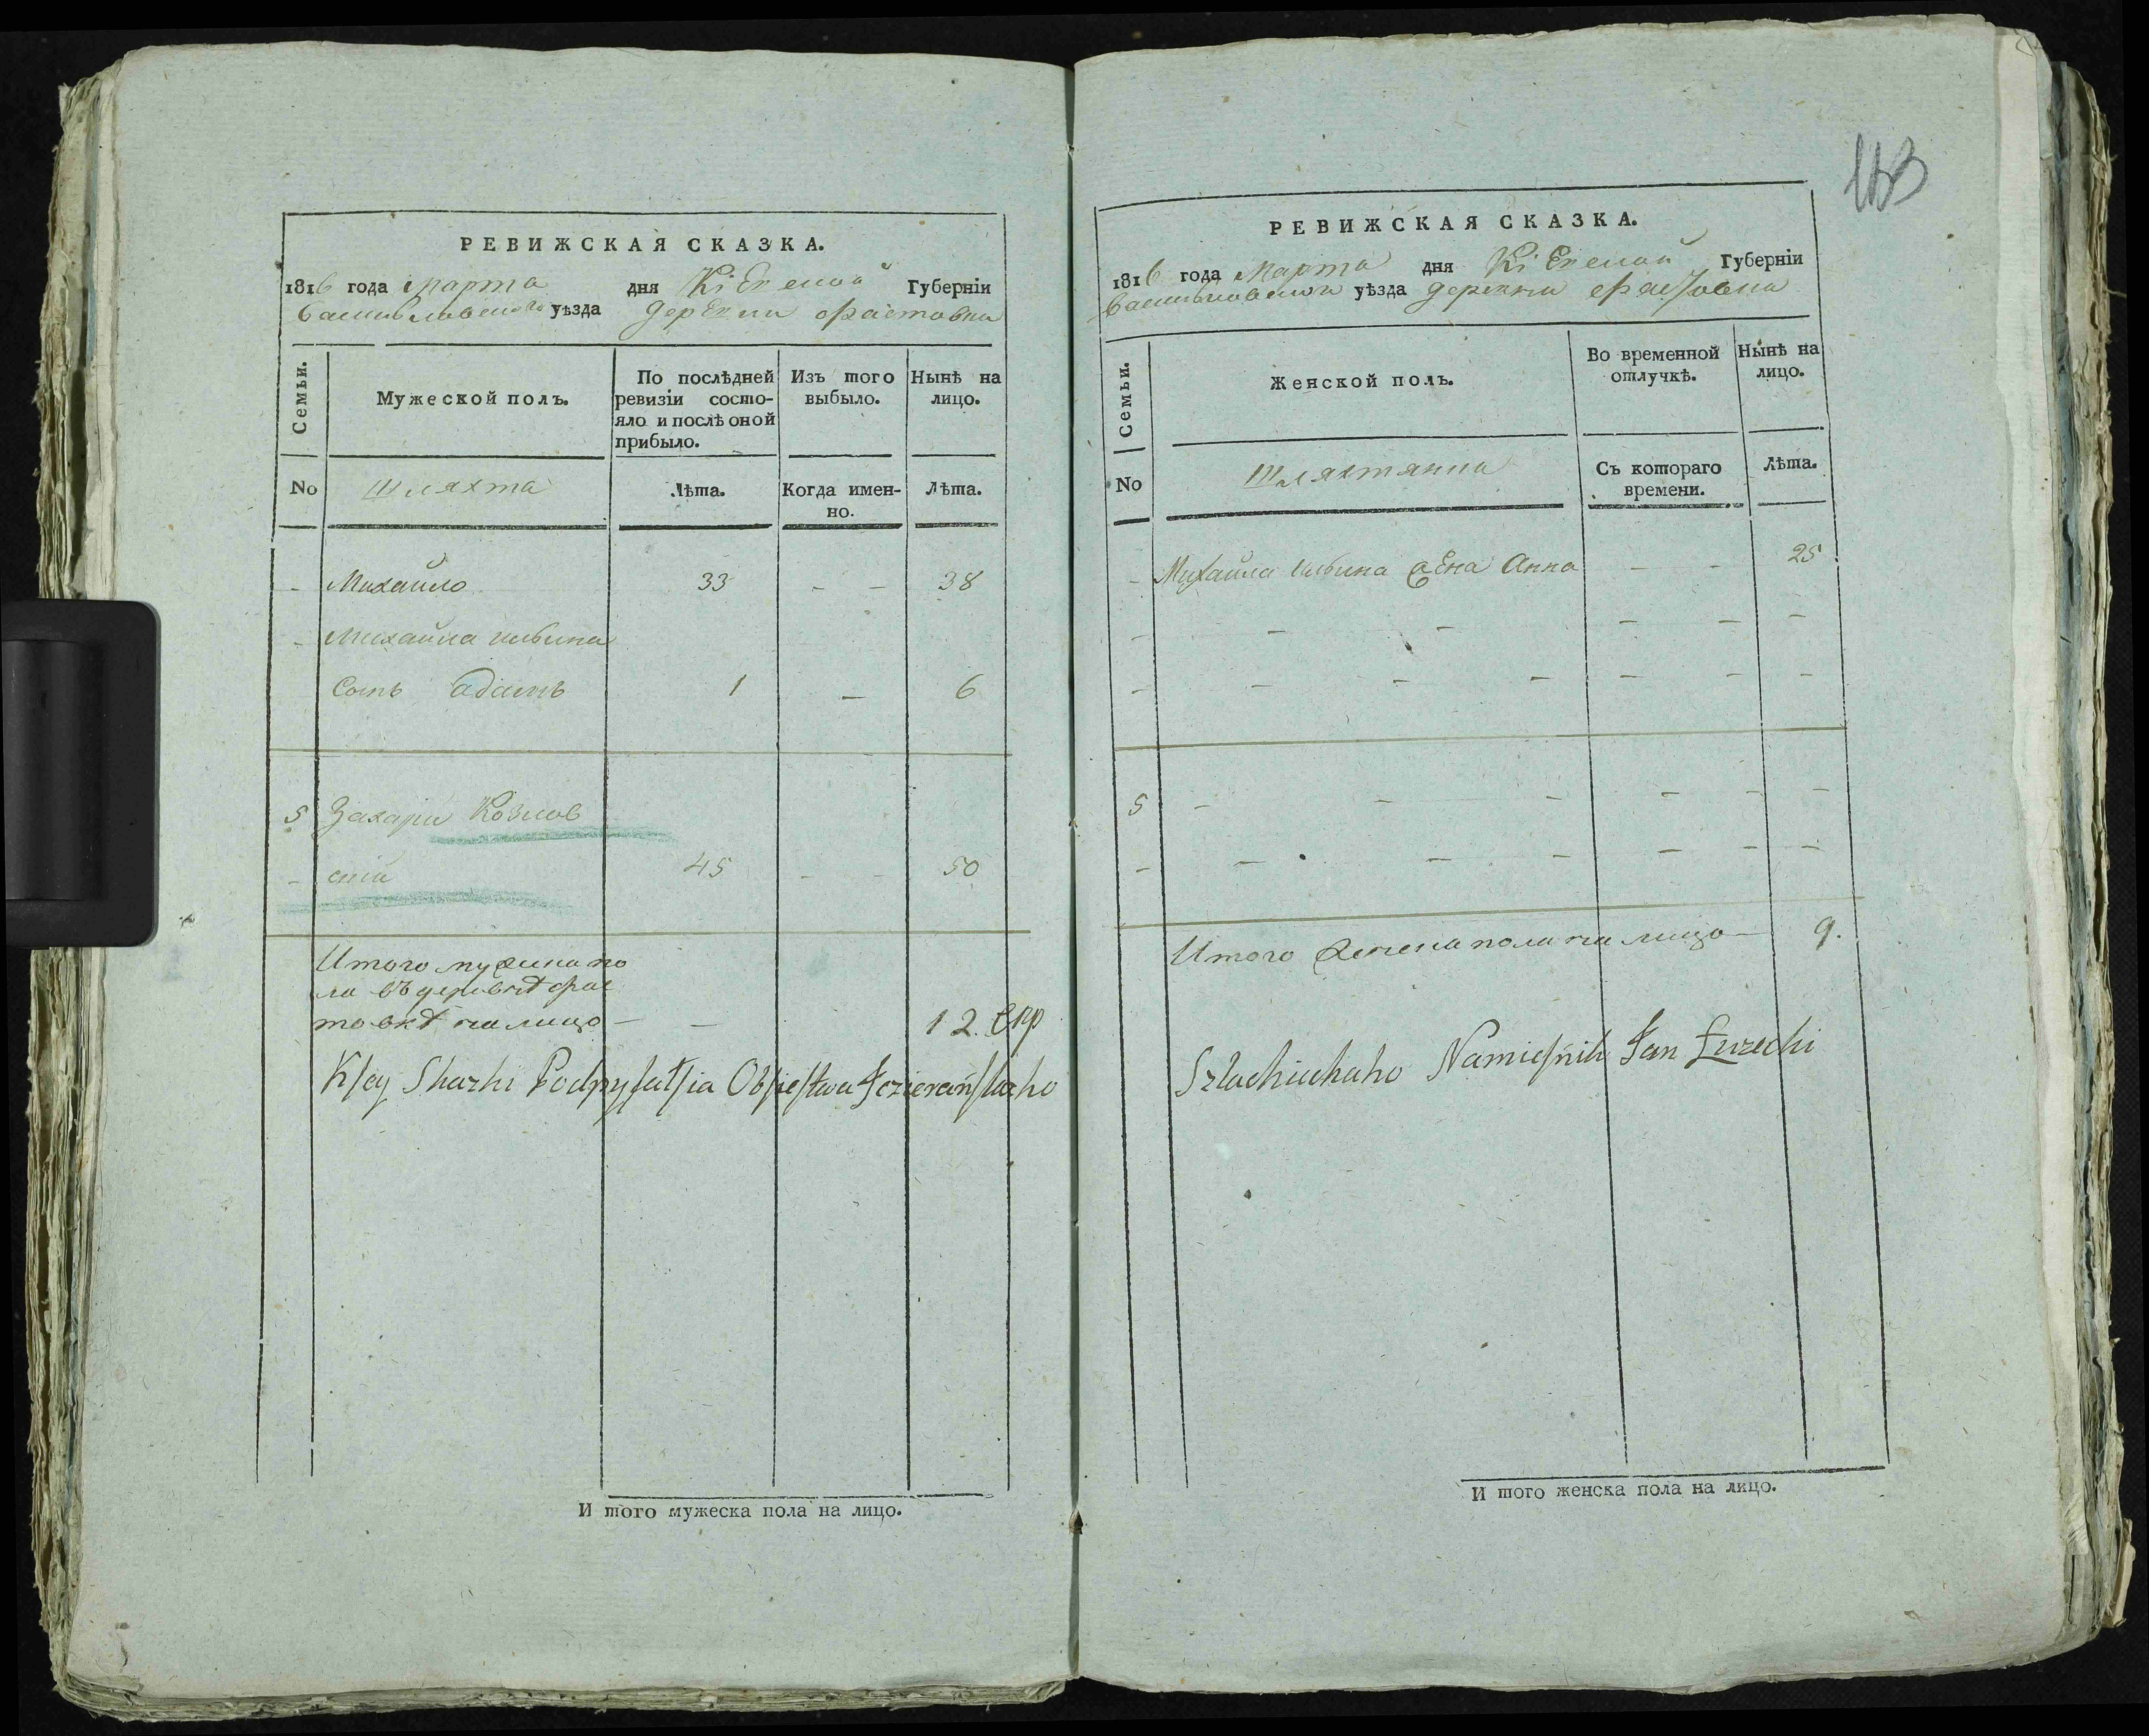 РЕВИЖСКАЯ СКАЗКА.
1816 года Марта дня Кіевской Губерніи
Васильковского уѣзда деревни Фастовки
Семьи.
Мужеской полъ.
По послѣдней ревизіи состо-
яло и послѣ оной
прибыло.
Изъ того
выбыло.
Нынѣ на
лицо.
No
Шляхта
Лѣта.
Когда имен-
но.
Лѣта.
- Михайло 33 - - 38
- Михайла
Сынъ адамъ 1 - 6
5 Захари Козлов
- скій 45 - - 50
Итого мужска по
ла въ деревнѣ Фас
товкѣ на лицо - - 12.
K sey Skazki Podpysałsia Obsiestwa Jezierańskaho
И того мужеска пола на лицо.
113
РЕВИЖСКАЯ СКАЗКА.
1816 года Марта дня Кіевской Губерніи
Васильковской уѣзда деревни Фастовки
Семьи.
Женской полъ.
Во временной
отлучкѣ.
Нынѣ на
лицо.
No
Шляхтянки
Съ котораго
времени.
Лѣта.
- Михайла жена Анна - - 25
- - - - - -
- - - - - - -
5 - - - - - -
- - - - - - -
Итого женска пола на лицо - 9.
Szlachickaho Namiesnik Jan Łuzecki
И того женска пола на лицо.